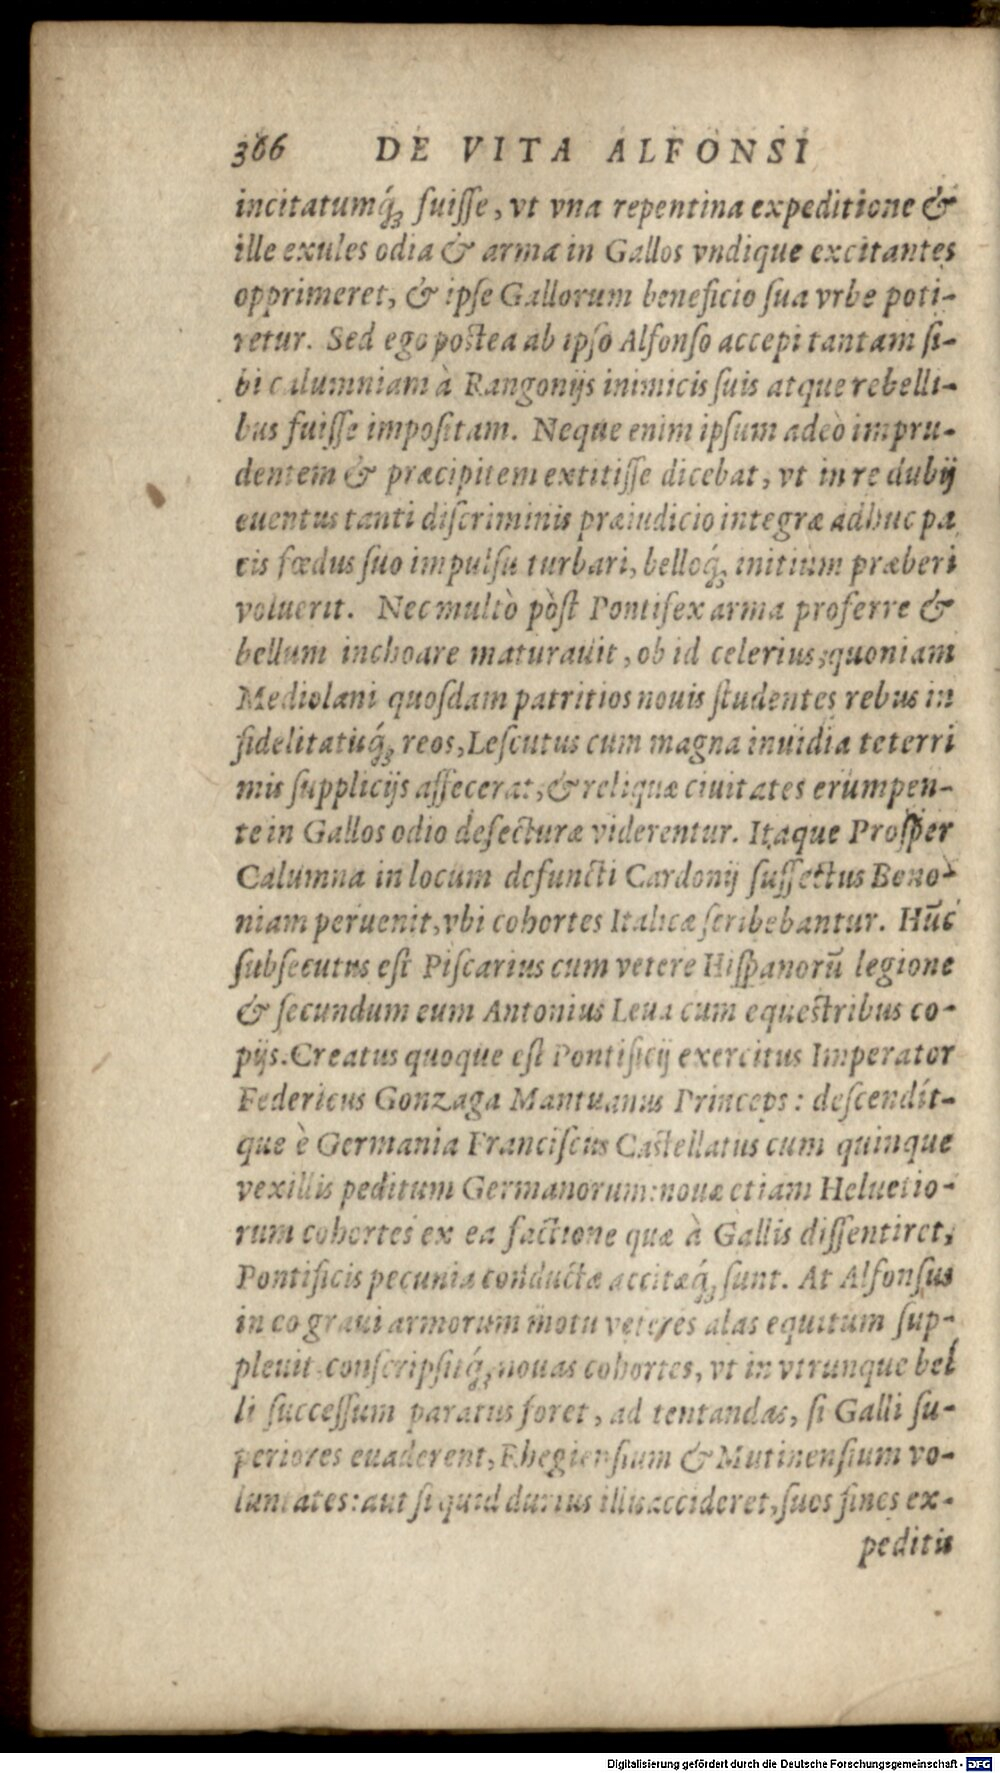 366 DE VITA ALFONSI
incitatumq́ꝫ fuiſſe, vt vna repentina expeditione &
ille exules odia & arma in Gallos vndique excitantes
opprimeret, & ipſe Gallorum beneficio ſua vrbe poti-
retur. Sed ego poſtea ab ipſo Alfonſo accepi tantam ſi-
bi calumniam à Rangonijs inimicis ſuis atque rebelli-
bus fuiſſe impoſitam. Neque enim ipſum adeò impru-
dentem & præcipitem extitiſſe dicebat, vt in re dubij
euentus tanti diſcriminis præiudicio integræ adhuc pa
cis fœdus ſuo impulſu turbari, belloq́ꝫ initium præberi
voluerit. Nec multò pòſt Pontifex arma proferre &
bellum inchoare maturauit, ob id celerius, quoniam
Mediolani quoſdam patritios nouis ſtudentes rebus in
fidelitatiſq́ꝫ reos, Leſcutus cum magna inuidia teterri
mis ſupplicijs affecerat, & reliquæ ciuitates erumpen-
te in Gallos odio defecturæ viderentur. Itaque Proſper
Calumna in locum defuncti Cardonij ſuffectus Bono-
niam peruenit, vbi cohortes Italicæ ſcribebantur. Hūc
ſubſecutus eſt Piſcarius cum vetere Hiſpanorū legione
& ſecundum eum Antonius Leua cum equeſtribus co-
pijs. Creatus quoque eſt Pontificij exercitus Imperator
Federicus Gonzaga Mantuanus Princeps: deſcendit-
que è Germania Franciſcus Caſtellatus cum quinque
vexillis peditum Germanorum: nouæ etiam Heluetio-
rum cohortes ex ea factione quæ à Gallis diſſentiret,
Pontificis pecunia conductæ accitæq́ꝫ ſunt. At Alfonſus
in eo graui armorum motu veteres alas equitum ſup-
pleuit conſcripſitq́ꝫ nouas cohortes, vt in vtrunque bel
li ſucceſſum paratus foret, ad tentandas, ſi Galli ſu-
periores euaderent, Rhegienſium & Mutinenſium vo-
luntates: aut ſi quid durius illis accideret, ſuos fines ex-
peditis
Digitalisierung gefördert durch die Deutsche Forschungsgemeinschaft - DFG